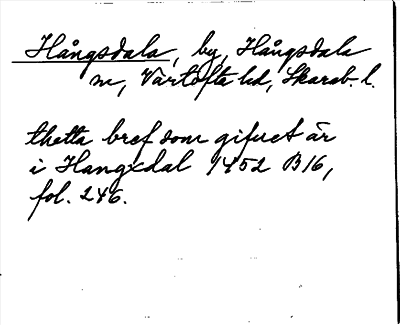 Hångsdala, by, Hångsdala
sn, Vartofta hd, Skarab. l.
thetta bref som gifuet är
i Hangxdal 1452 B16,
fol. 246.